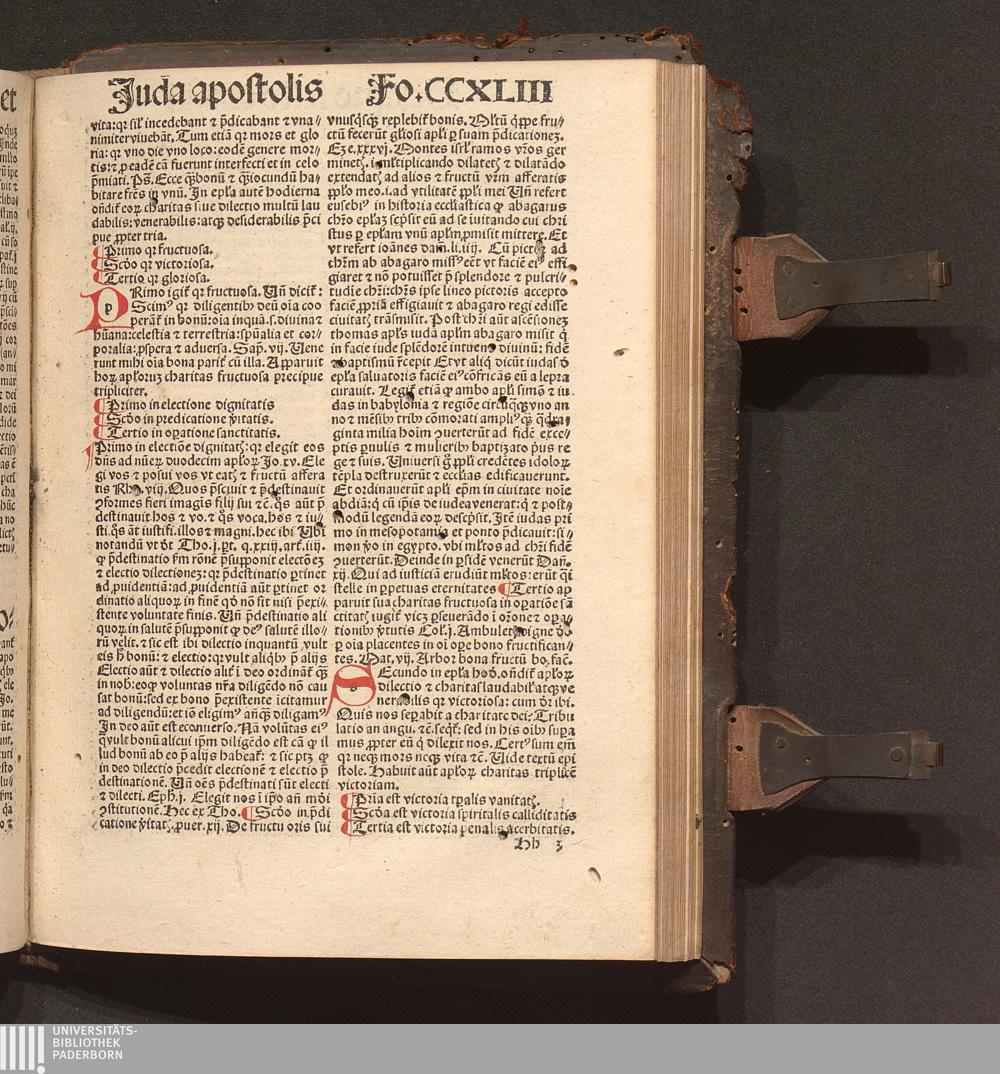 Juda apostolis Fo.CCXLIII
vita: qr sil' incedebant ⁊ p̄dicabant ⁊ vna-
nimiter viuebāt. Tum etiā qr mors et glo
ria: qr vno die vno loco: eodē genere mor-
tis: ⁊ ꝓ eadē cā fuerunt interfecti et in celo
p̄miati. Ps. Ecce q̄ bonū ⁊ q̄ iocundū ha-
bitare frēs in vnū. In epl'a autē hodierna
ondit̄ eoꝝ charitas siue dilectio multū lau
dabilis: venerabilis: atqꝫ desiderabilis p̄ci
pue ꝓpter tria.
Primo qr fructuosa.
Scd̄o qr victoriosa.
Tertio qr gloriosa.
PRimo igit̄ qr fructuosa. Vn̄ dicit̄:
Scimꝰ qr diligentibꝰ deū oīa coo
perāt̄ in bonū: oīa inquā. s. diuina ⁊
hūana: celestia ⁊ terrestria: spūalia et cor-
poralia: ꝓspera ⁊ aduersa. Sap̄. vij. Vene
runt mihi oīa bona parit̄ cū illa. Apparuit
hoꝝ apl'oꝝ charitas fructuosa precipue
tripliciter.
Primo in electione dignitatis
Scd̄o in predicatione v̄itatis.
Tertio in oꝑatione sanctitatis.
Primo in electiōe dignitatꝭ: qr elegit eos
dn̄s ad nūeꝝ duodecim apl'oꝝ Jo. xv. Ele
gi vos ⁊ posui vos vt eatꝭ ⁊ fructū affera
tis Ro. viij. Quos p̄sciuit ⁊ p̄destinauit
ꝯformes fieri imagis filij sui ⁊c̄. q̄s aūt p̄
destinauit. hos ⁊ vo. ⁊ q̄s voca. hos ⁊ iu
sti. q̄s āt iustifi. illos ⁊ magni. hec ibi Vbi
notandū vt dt̄ Tho. j. pt. q. xxiij. art. iiij.
ꝙ p̄destinatio s̄m rōnē p̄supponit electōeꝫ
⁊ electio dilectioneꝫ: qr p̄destinatio ꝑtinet
ad ꝓuidentiā: ad ꝓuidentiā aūt ꝑtinet or
dinatio aliquoꝝ in finē qd̄ nō fit nisi p̄exi-
stente voluntate finis. Vn̄ p̄destinatio ali
quoꝝ in salutē p̄supponit ꝙ deꝰ salutē illo-
rū velit. ⁊ sic est ibi dilectio inquantū vult
eis h̄ bonū: ⁊ electio: qr vult aliqbꝰ p̄ alijs
Electio aūt ⁊ dilectio alit̄ ī deo ordinant̄ q̄ꝫ
in nob: eoꝙ voluntas nr̄a diligēdo nō cau
sat bonū: sed ex bono p̄existente īcitamur
ad diligendū: et iō eligimꝰ anq̄ꝫ diligamꝰ
In deo aūt est ecōuerso. Nā volūtas eiꝰ
q vult bonū alicui ip̄m diligēdo est cā ꝙ il
lud bonū ab eo p̄ alijs habeat̄: ⁊ sic ptꝫ ꝙ
in deo dilectio p̄cedit electionē ⁊ electio p̄
destinationē. Vn̄ oēs p̄destinati sūt electi
⁊ dilecti. Eph. j. Elegit nos ī ip̄o an̄ mōi
ꝯstitutionē. Hec ex Tho. Scd̄o in p̄di
catione v̄itatꝭ. ꝓuer. xij. De fructu oris sui
vnusq̄sqꝫ replebit̄ bonis. Ml'tū q̄ppe fru-
ctū fecerūt gl'iosi apl'i ꝑ suam p̄dicationeꝫ.
Eze. xxxvj. Montes isrl' ramos vr̄os ger
minetꝭ. ⁊ ml'tiplicando dilatetꝭ ⁊ dilatādo
extendatꝭ ad alios ⁊ fructū vrm̄ afferatis
ppl'o meo. i. ad vtilitatē ppl'i mei Vn̄ refert
eusebiꝰ in historia eccl'astica ꝙ abagarus
chr̄o epl'aꝫ scp̄sit eū ad se īuitando cui chri
stus ꝑ epl'am vnū apl'm ꝓmisit mittere. Et
vt refert ioānes dam. li. iiij. Cū pictor ad
chr̄m ab abagaro missꝰ eēt vt faciē eiꝰ effi
giaret ⁊ nō potuisset p̄ splendore ⁊ pulcri-
tudīe chr̄i: chr̄s ip̄se līteo pictoris accepto
faciē ꝓpriā effigiauit ⁊ abagaro regi edisse
ciuitatꝭ trāsmisit. Post chr̄i aūt ascēsioneꝫ
thomas apl's iudā apl'm abagaro misit q̄
in facie iude splēdorē intuens diuinū: fidē
⁊ baptismū recepit Et vt aliq̄ dicūt iudas d̄
epl'a saluatoris faciē eiꝰ cōfricās eū a lepra
curauit. Legit̄ etiā ꝙ ambo apl'i simō ⁊ iu
das in babylonia ⁊ regiōe circūq̄qꝫ vno an
no ⁊ mēsibꝰ tribꝰ cōmorati ampliꝰ q̄ꝫ q̄dra
ginta milia hoīm ꝯuerterūt ad fidē exce-
ptis ꝑuulis ⁊ mulieribꝰ baptizato prius re
ge ⁊ suis. Vniuersi g̊ ppl'i credētes idoloꝝ
tēpla destruxerūt ⁊ eccl'ias edificauerunt.
Et ordinauerūt apl'i ep̄m in ciuitate noīe
abdiā: q̄ cū ip̄is de iudea venerat: q̄ ⁊ post-
modū legendā eoꝝ descp̄sit. Itē iudas pri
mo in mesopotamia et ponto p̄dicauit: si-
mon v̄o in egypto. vbi ml'tos ad chr̄i fidē
ꝯuerterūt. Deinde in ꝑsidē venerūt Dan̄.
xij. Qui ad iusticiā erudiūt ml'tos: erūt q̄si
stelle in ꝑpetuas eternitates Tertio ap
paruit sua charitas fructuosa in oꝑatiōe sā
ctitatꝭ iugit̄ vicꝫ ꝑseuerādo ī oōone ⁊ oꝑa-
tionibꝰ v̄tutis Col'. j. Ambuletis digne deo
ꝑ oīa placentes in oī oꝑe bono fructifican-
tes. Mat. vij. Arbor bona fructū bo. fac̄.
SEcundo in epl'a hod̄. ondit̄ apl'oꝝ
dilectio ⁊ charitas laudabil' atqꝫ ve
nerabilis qr victoriosa: cum dr̄ ibi.
Quis nos seꝑabit a charitate dei: Tribu
latio an angu. ⁊c̄. seqt̄: sed in his oibꝰ suꝑa
mus ꝓpter eū q̄ dilexit nos. Certꝰ sum em̄
qr necqꝫ mors necqꝫ vita ⁊c̄. Vide textū epi
stole. Habuit aūt apl'oꝝ charitas triplicē
victoriam.
Pria est victoria tp̄alis vanitatꝭ.
Scd̄a est victoria spiritalis calliditatis
Tertia est victoria penalis acerbitatis.
Hh 3
UNIVERSITÄTS-
BIBLIOTHEK
PADERBORN